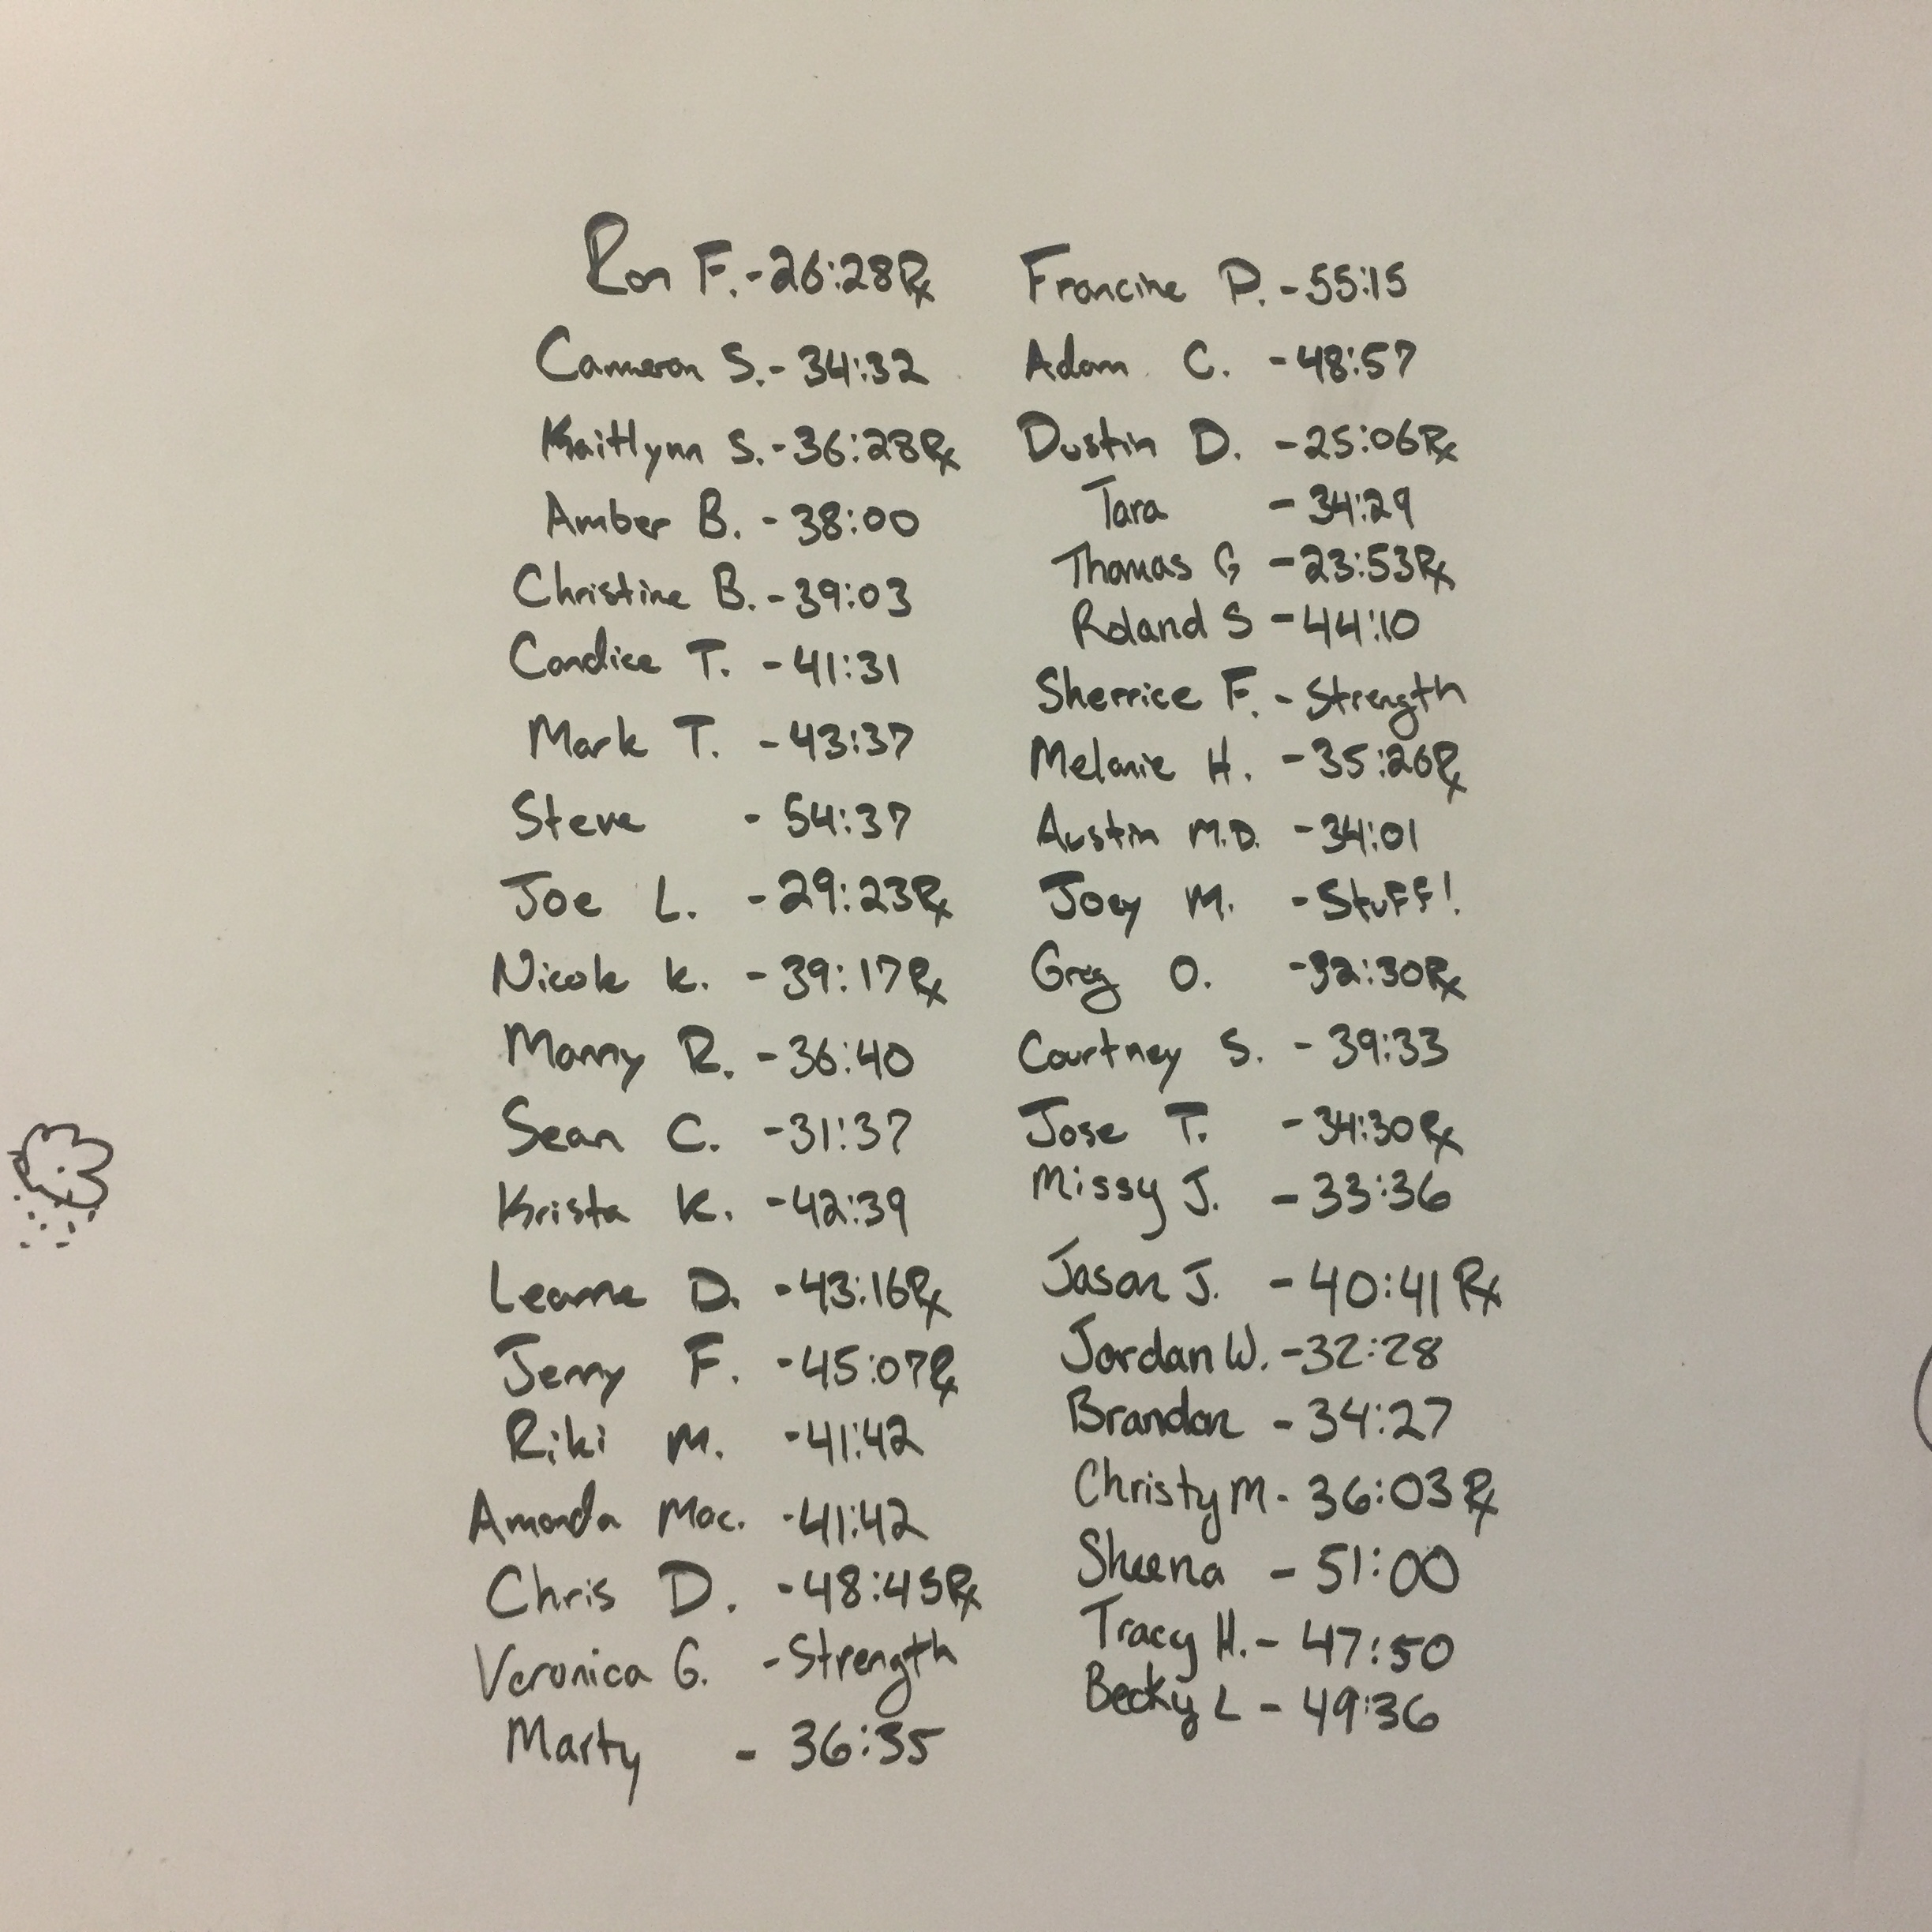 Ron F. - 26:28 Rx
Cameron S. - 34:32
Kaitlynn S. - 36:28 Rx
Amber B. - 38:00
Christine B. - 39:03
Candice T. - 41:31
Mark T. - 43:37
Steve - 54:37
Joe L. - 29:23 Rx
Nicole K. - 39:17 Rx
Manny R. - 36:40
Sean C. - 31:37
Krista K. - 42:39
Leanne D. - 43:16 Rx
Jerry F. - 45:07 Rx
Riki M. - 41:42
Amanda Mac. - 41:42
Chris D. - 48:45 Rx
Veronica G. - Strength
Marty - 36:35
Francine P. - 55:15
Adam C. - 48:57
Dustin D. - 25:06 Rx
Tara - 34:29
Thomas G - 23:53 Rx
Roland S - 44:10
Sherrice F. - Strength
Melanie H. - 35:26 Rx
Austin M.D. - 34:01
Joey M. - Stuff!
Greg O. - 32:30 Rx
Courtney S. - 39:33
Jose T. - 34:30 Rx
Missy J. - 33:36
Jason J. - 40:41 Rx
Jordan W. - 32:28
Brandon - 34:27
Christy M - 36:03 Rx
Sheena - 51:00
Tracy H. - 47:50
Becky L - 49:36